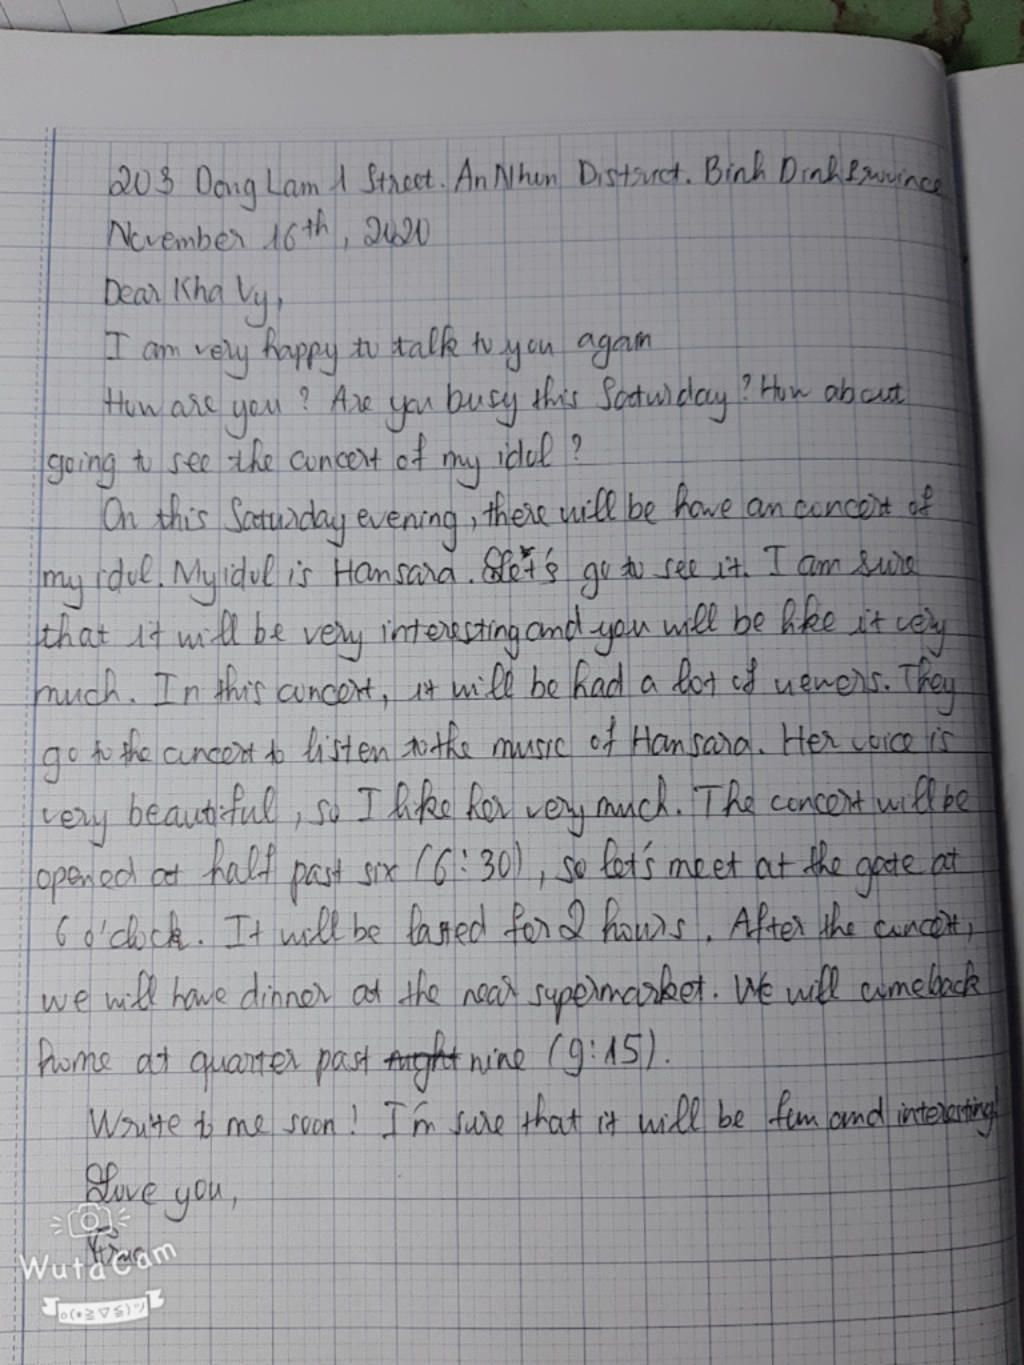 203 Dong Lam 1 Street. An Nhon District. Binh Dinh Province
November 16th, 2020
Dear Kha Vy,
I am very happy to talk to you again
How are you? Are you busy this Saturday? How about
going to see the concert of my idol?
On this Saturday evening, there will be have an concert of
my idol. My idol is Hansara. Let's go to see it. I am sure
that it will be very interesting and you will be like it very
much. In this concert, it will be had a lot of viewers. They
go to the concert to listen to the music of Hansara. Her voice is
very beautiful, so I like her very much. The concert will be
opened at half past six (6:30), so let's meet at the gate at
6 o'clock. It will be lasted for 2 hours. After the concert,
we will have dinner at the near supermarket. We will comeback
home at quarter past night nine (9:15).
Write to me soon! I'm sure that it will be fun and interesting!
Love you,
WutaCam